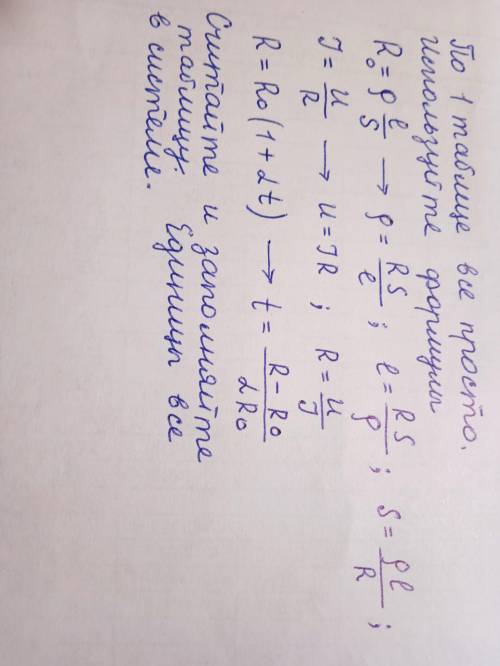 По 1 таблице все просто.
Используйте формулы
R₀ = ρ l/S → ρ = RS/l ; l = RS/ρ ; S = ρl/R ;
I = U/R → U = IR ; R = U/I
R = R₀(1 + αt) → t = (R - R₀)/(αR₀)
Считайте и заполняйте
таблицу. Единицы все
в системе.